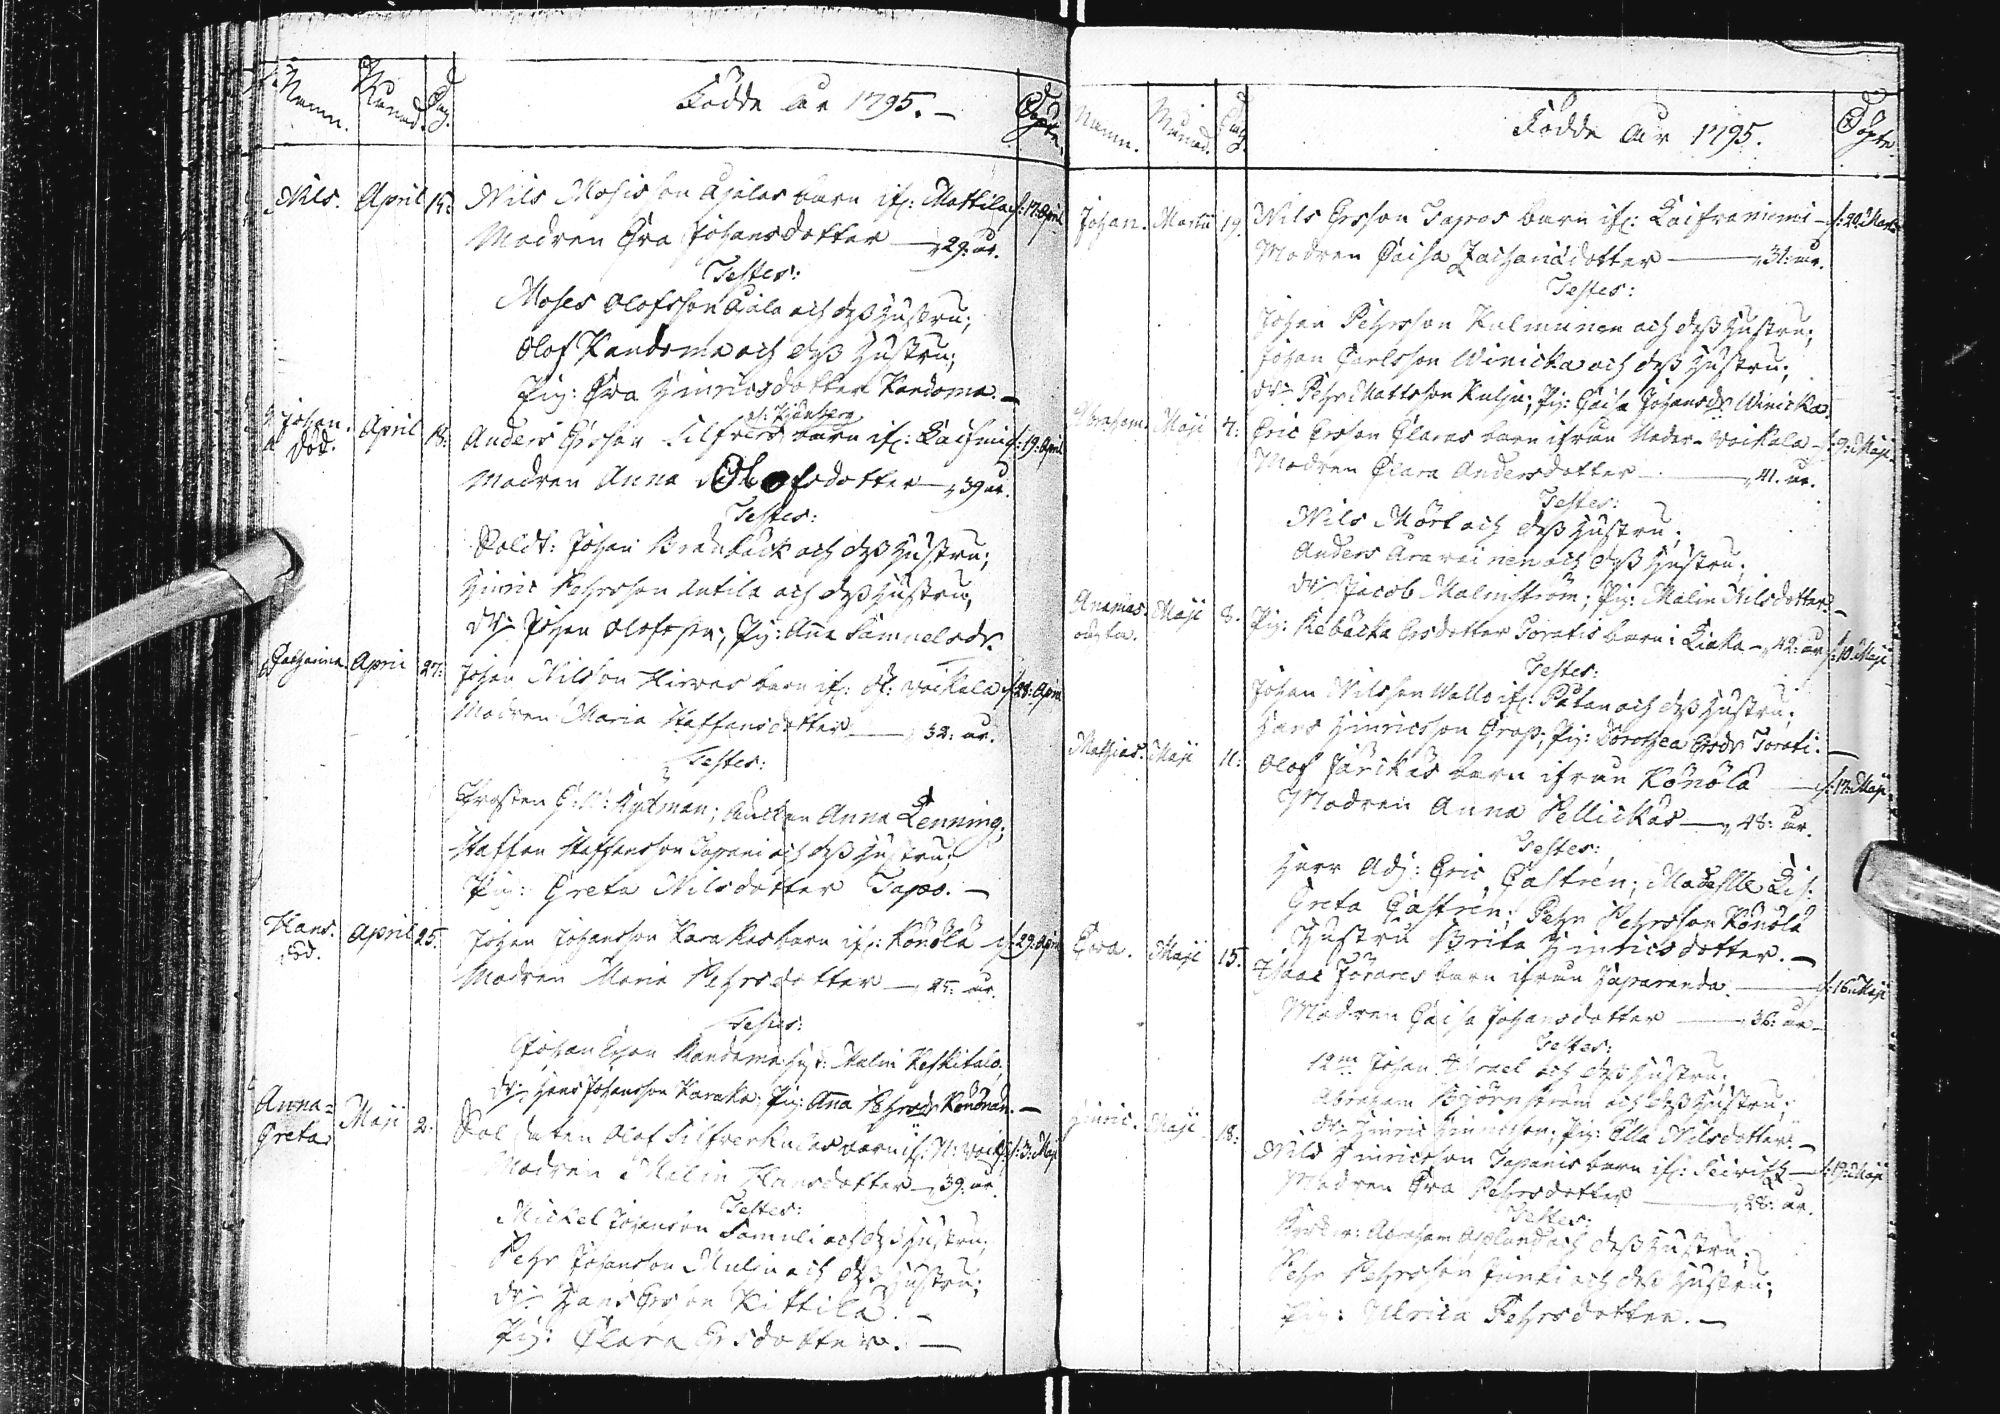 Namn. Månad. Dag. Födde År 1795. Döpte.
Nils. April 15: Nils Mosisson Ajalas barn ifr: Mattila d: 17: April
Modren Eva Johansdotter — 29: år.
Testes:
Moses Olofsson Ajala och dess hustru;
Olof Kandoma och dess hustru;
Pig: Eva Hinricsdotter Kandoma. —
Johan. död. April 18: Anders Ersson barn ifr: d: 19: April
Modren Anna Olofsdotter — 39 år.
Testes:
Soldt: Johan Brandbäck och dess hustru;
Hinric Pehrsson Antila och dess hustru;
Dr: Johan Olofsson; Pig: Anna Samuelsdr.
Catharina. April 27: Johan Nilsson Hirvas barn ifr: Voikala d: 28: April
Modren Maria Staffansdotter — 32: år.
Testes:
Anna Lenning;
Staffan Staffansson Tapani och dess hustru;
Pig: Greta Nilsdotter Tapos. —
Hans. död. April 25. Johan Johansson Karakas barn ifr: Könölä d: 29: April
Modren Maria Pehrsdotter — 25: år.
Testes:
Johan Ersson Kandoma hust: Malin Keskitalo;
Dr: Hans Johansson Karaka; Pig: Anna Pehrsdr —
Anna= Greta. Maji 2: Soldaten Olof Silfverkulas barn ifr: N: d: 3: Maji
Modren Malin Hansdotter — 39. år.
Testes:
Mickel Johansson Samuli och dess hustru;
Pehr Johansson Mulin och dess hustru;
Dr: Hans Ersson Kittilä. —
Pig: Clara Ersdotter. —
Namn. Månad. Dag. Födde År 1795. Döpte.
Johan. Martii 19. Nils Ersson Tapos barn ifr: d: 20: Martii
Modren Caisa Zachariædotter — 31: år.
Testes:
Johan Pehrsson Kulmunen och dess hustru;
Johan Carlsson Winicka och dess hustru;
Dr: Pehr Mattsson Kulju; Pig: Caisa Johansdr Winicka
Abraham. Maji 7: Eric Ersson Claras barn ifrån Neder-Voikala — d: 9: Maji
Modren Clara Andersdotter — 41. år.
Testes:
Nils Mört och dess hustru;
Anders och dess hustru;
Dr: Jacob Malmström; Pig: Malin Nilsdotter. —
Ananias. oägta. Maji 8. Pig: Rebäcka Ersdotter Toratis barn i Kiaka — 42: år d: 10: Maji
Testes:
Johan Nilsson Wallo ifr: och dess hustru;
Hans Hinricsson Grap; Pig: Dorothea Ersdr Torati. —
Mathias. Maji 11: Olof Järickäs barn ifrån Könölä — d: 17: Maji
Modren Anna Pellickas — 43: år.
Testes:
Herr Adj: Eric Castrén; Madselle Lis:
Greta Castrén; Pehr Pehrsson Könölä
Hustru Brita Hinricsdotter. —
Eva. Maji 15. Isaac barn ifrån Haparanda. — d: 16: Maji
Modren Caisa Johansdotter — 36: år
Testes:
Johan Israel och dess hustru;
Abraham Björnström och dess hustru;
Dr: Hinric Hinricsson; Pig: Ella Nilsdotter. —
Hinric. Maji 18: Nils Hinricsson Tapanis barn ifr: — d: 19: Maji
Modren Eva Pehrsdotter — 28: år.
Testes:
Abraham Asplund och dess hustru;
Pehr Pehrsson Junki och dess hustru;
Pig: Ulrica Pehrsdotter. —